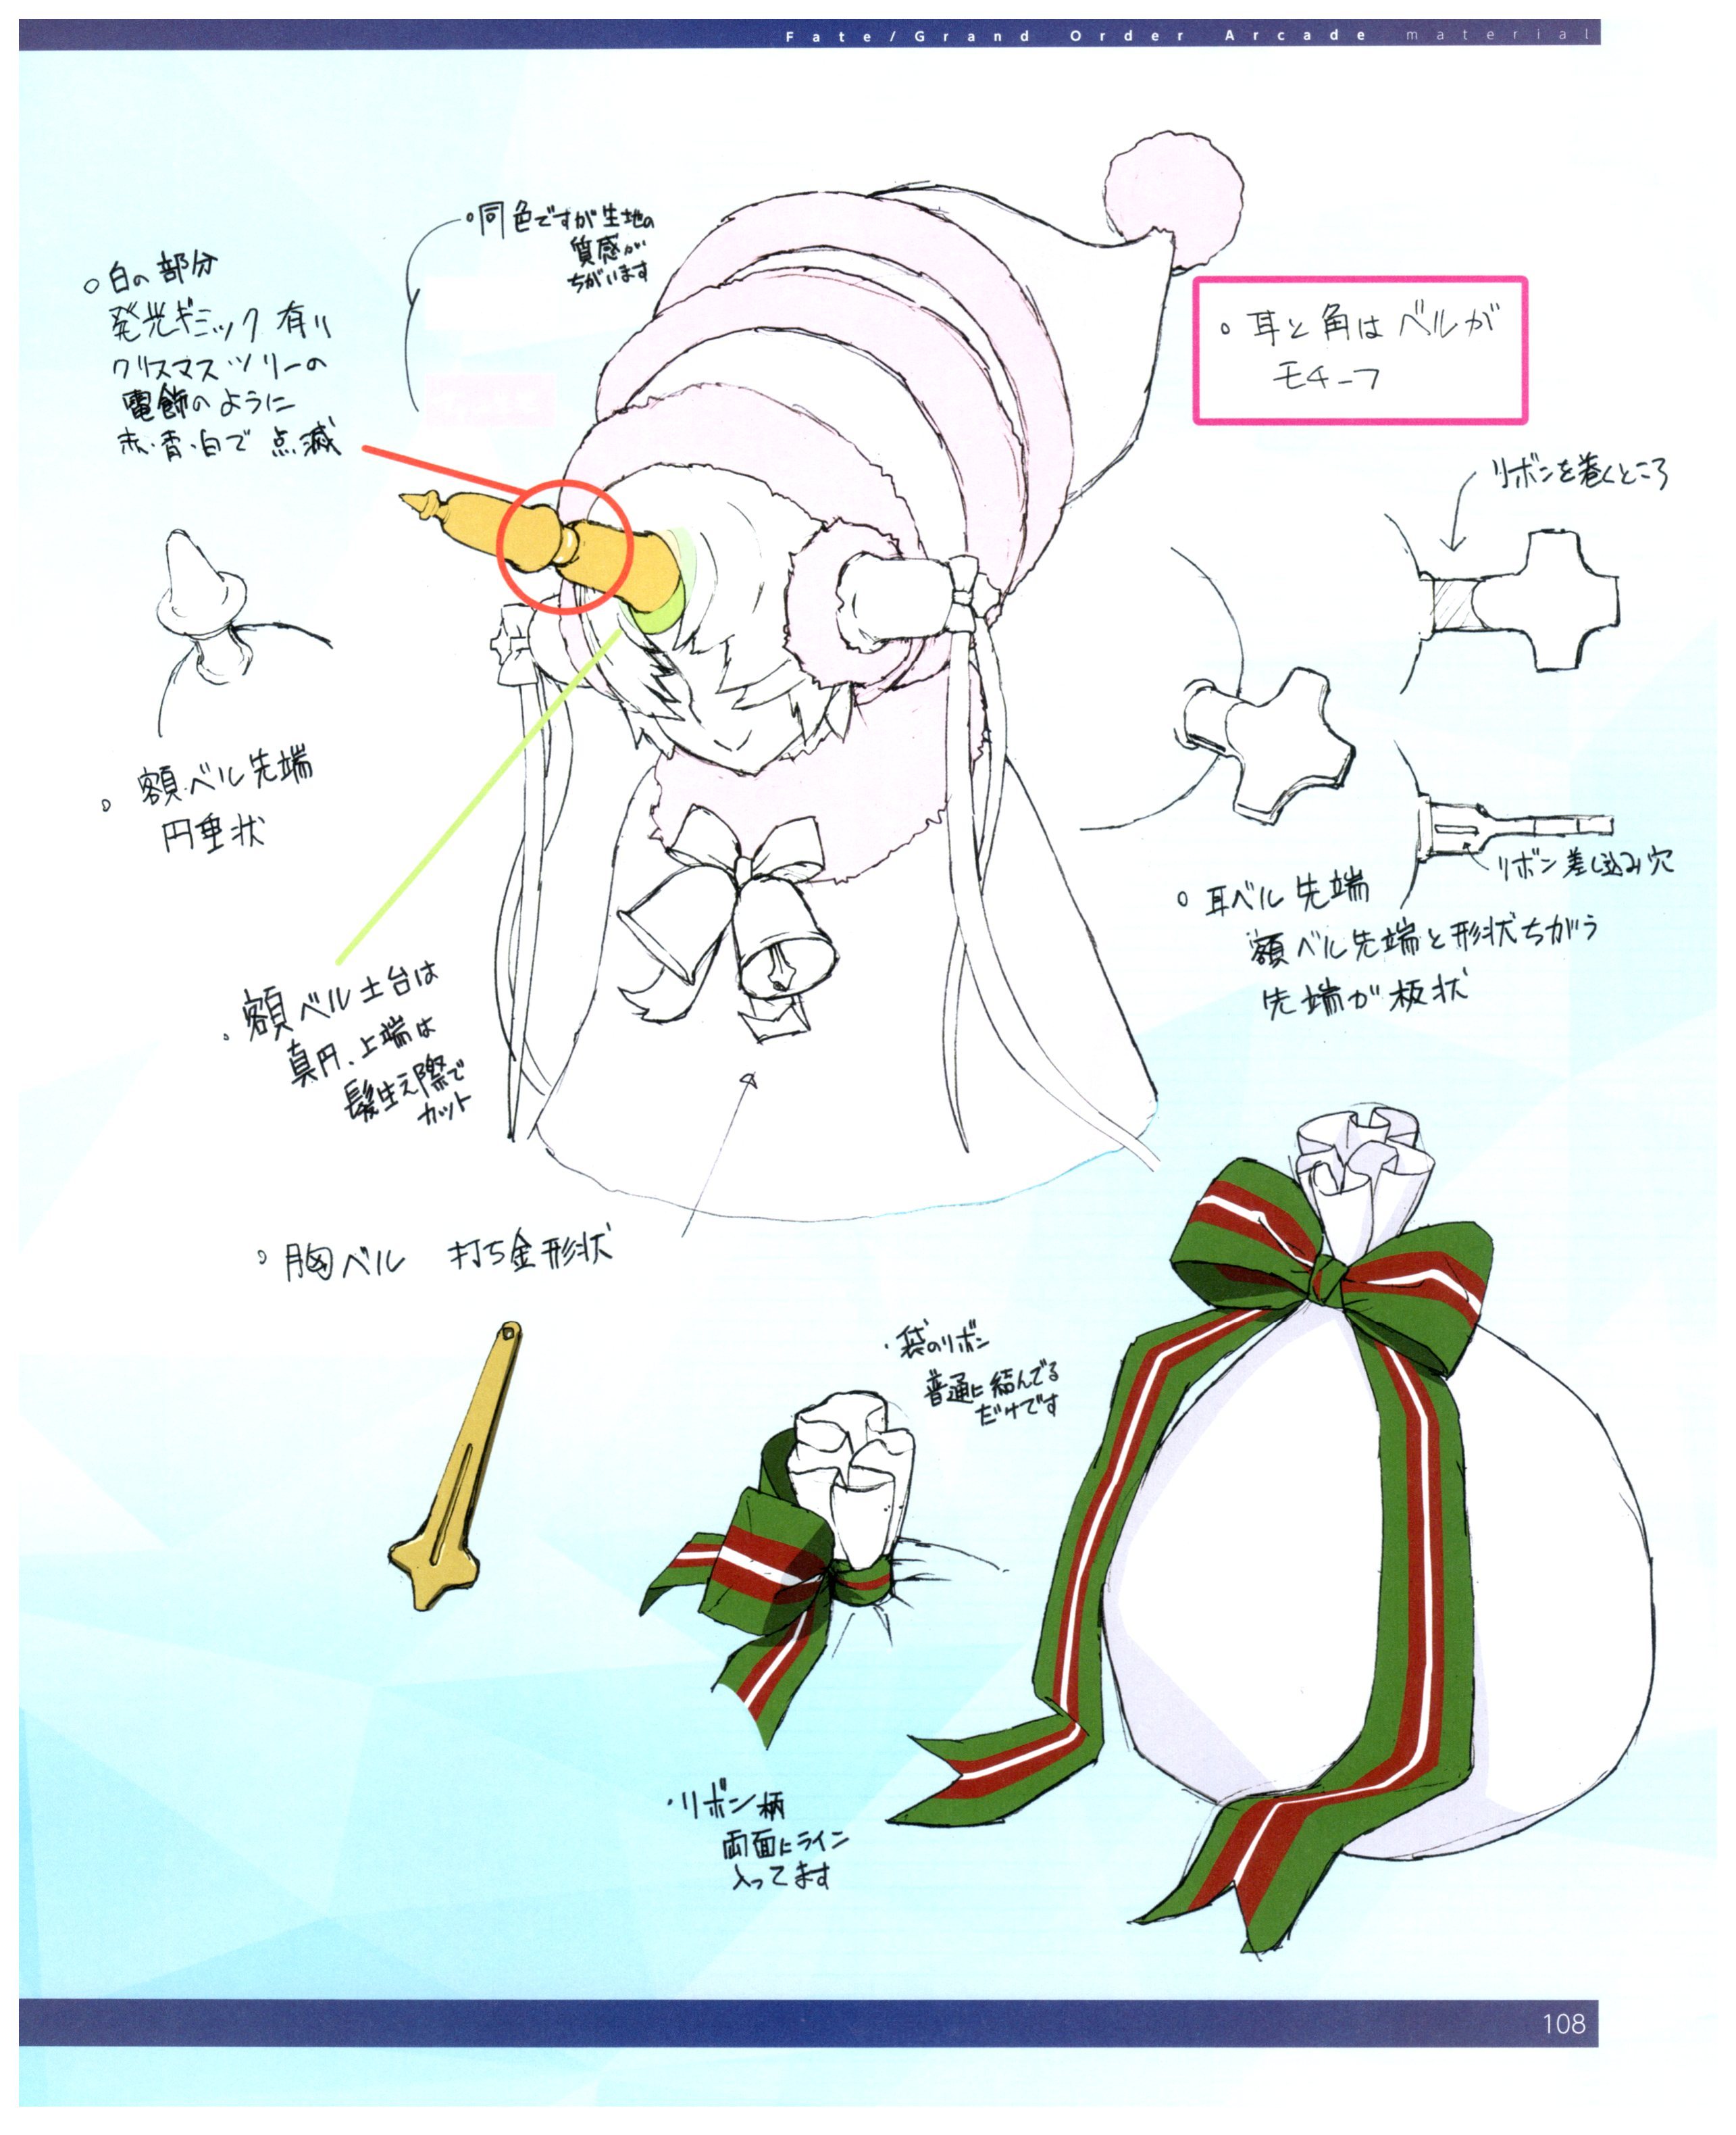 Fate/Grand Order Arcade material
同色ですが生地の
質感が
ちがいます
白の部分
発光ギミック有り
クリスマスツリーの
電飾のように
赤・青・白で点滅
耳と角はベルが
モチーフ
リボンを巻くところ
額ベル先端
円垂状
リボン差し込み穴
耳ベル先端
額ベル先端と形状ちがう
先端が板状
額ベル土台は
真円、上端は
髪生え際で
カット
胸ベル 打ち金形状
・袋のリボン
普通に結んでる
だけです
・リボン柄
両面にライン
入ってます
108